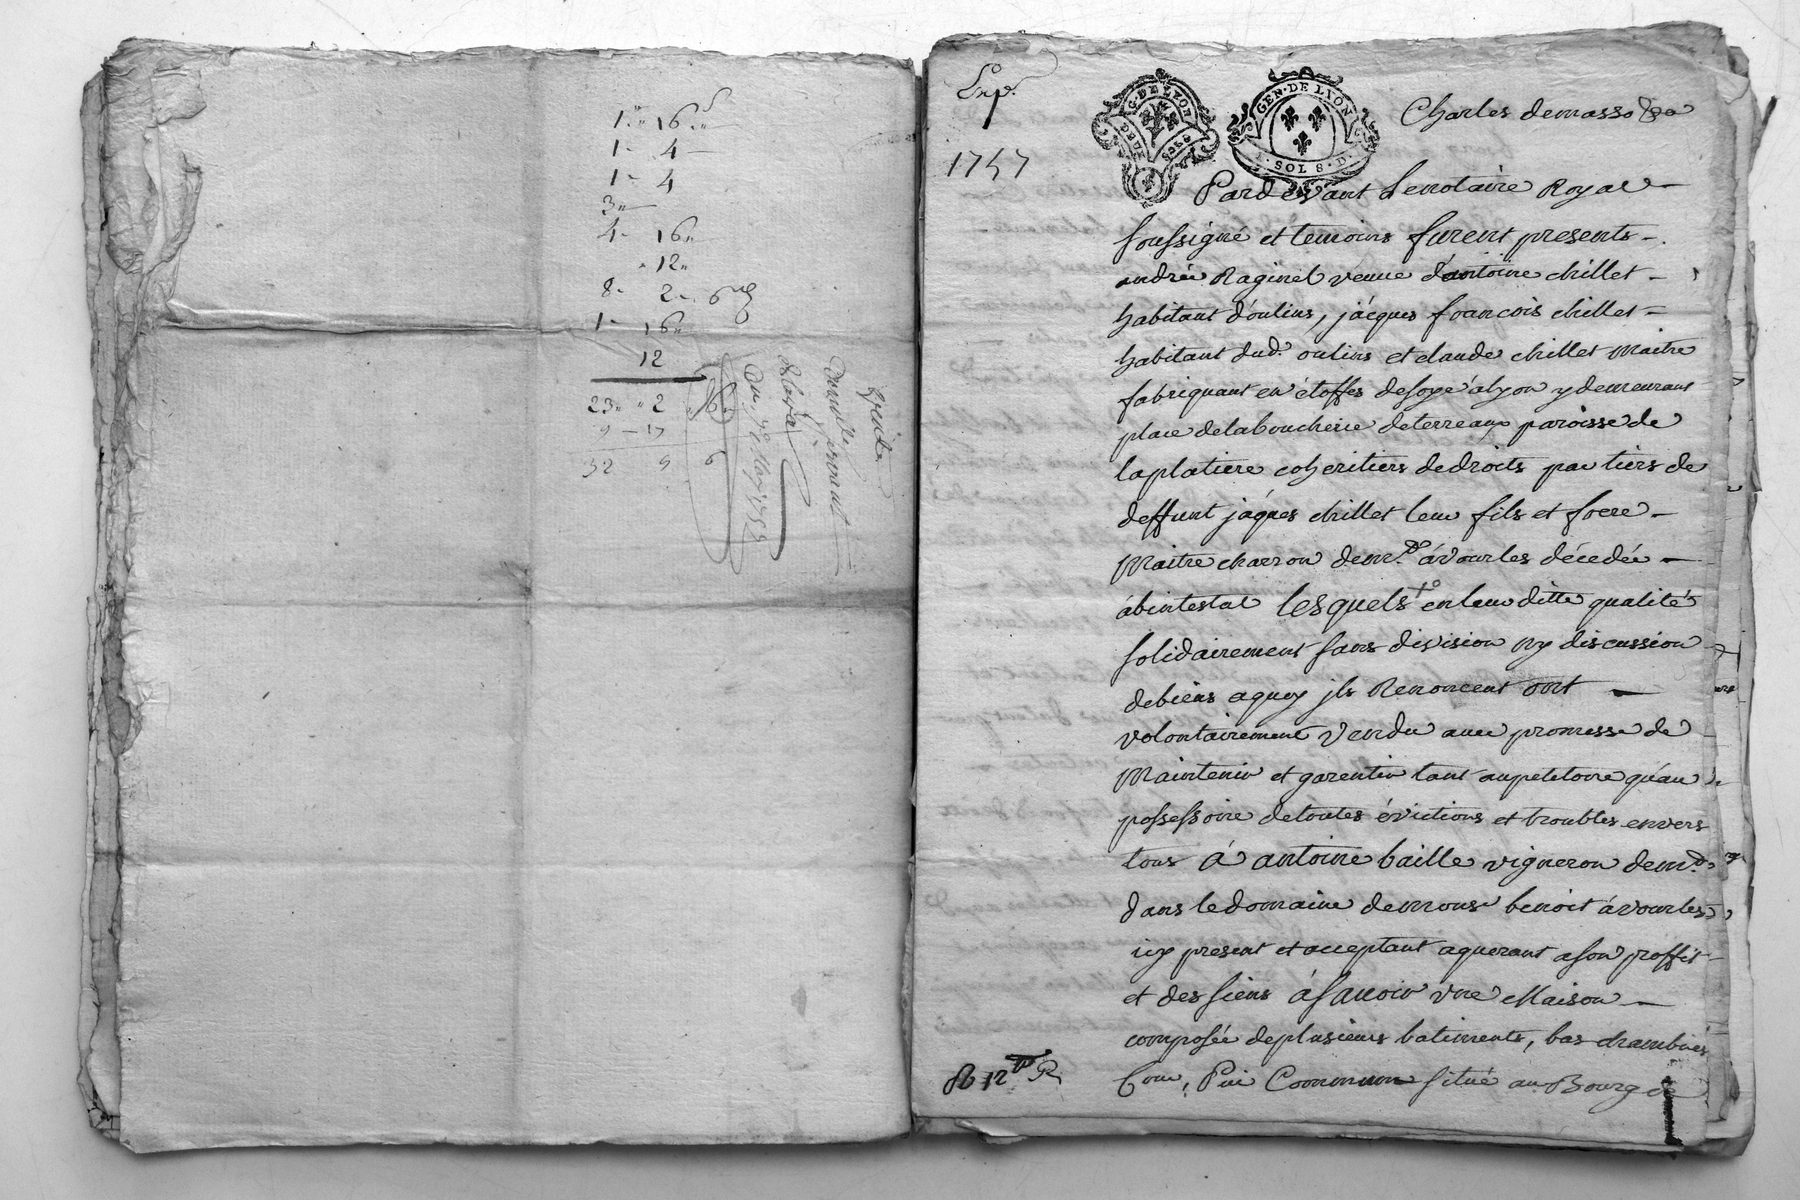 1 " 16 "
1 - 4 -
1 - 4
3 "
4 - 16 "
" 12 "
8 - 2 - 6
1 - 16 "
12
23 " " 2 " 6
9 - 17
32 9 6
quitt
Exp.
1747
G. DE LYON
DEUX SOLS
GEN. DE LION
SOL 8. D.
Charles demasso
Pardevant Lenotaire Royal
soussigné et temoins furent presents
andrée Raginel veuve d'antoine chillet
habitant d'oulins, jácques francois chillet
habitant dud. oulins et claude chillet maitre
fabriquant en étoffes desoye ályon y demeurant
place delaboucherie deterreaux paroisse de
laplatiere coheritiers dedroits par tiers de
deffunt jáques chillet leur fils et frere
Maitre charron dem.t ávourles décedée
abintestat lesquels en leur ditte qualité
solidairement sans division ny discussion
debiens aquoy ils Renoncent ont
volontairement vendu avec promesse de
Maintenir et garentir tant aupetitoire qu'au
possessoire detoutes évictions et troubles envers
tous á antoine baille vigneron dem.t
dans ledomaine demonsr benoit ávourles
icy present et acceptant aquerant ason proffit
et des siens ásavoir une Maison
composée deplusieurs batiments, bas chambres
Cour, Pui Commun situé au Bourg de
R 12 R